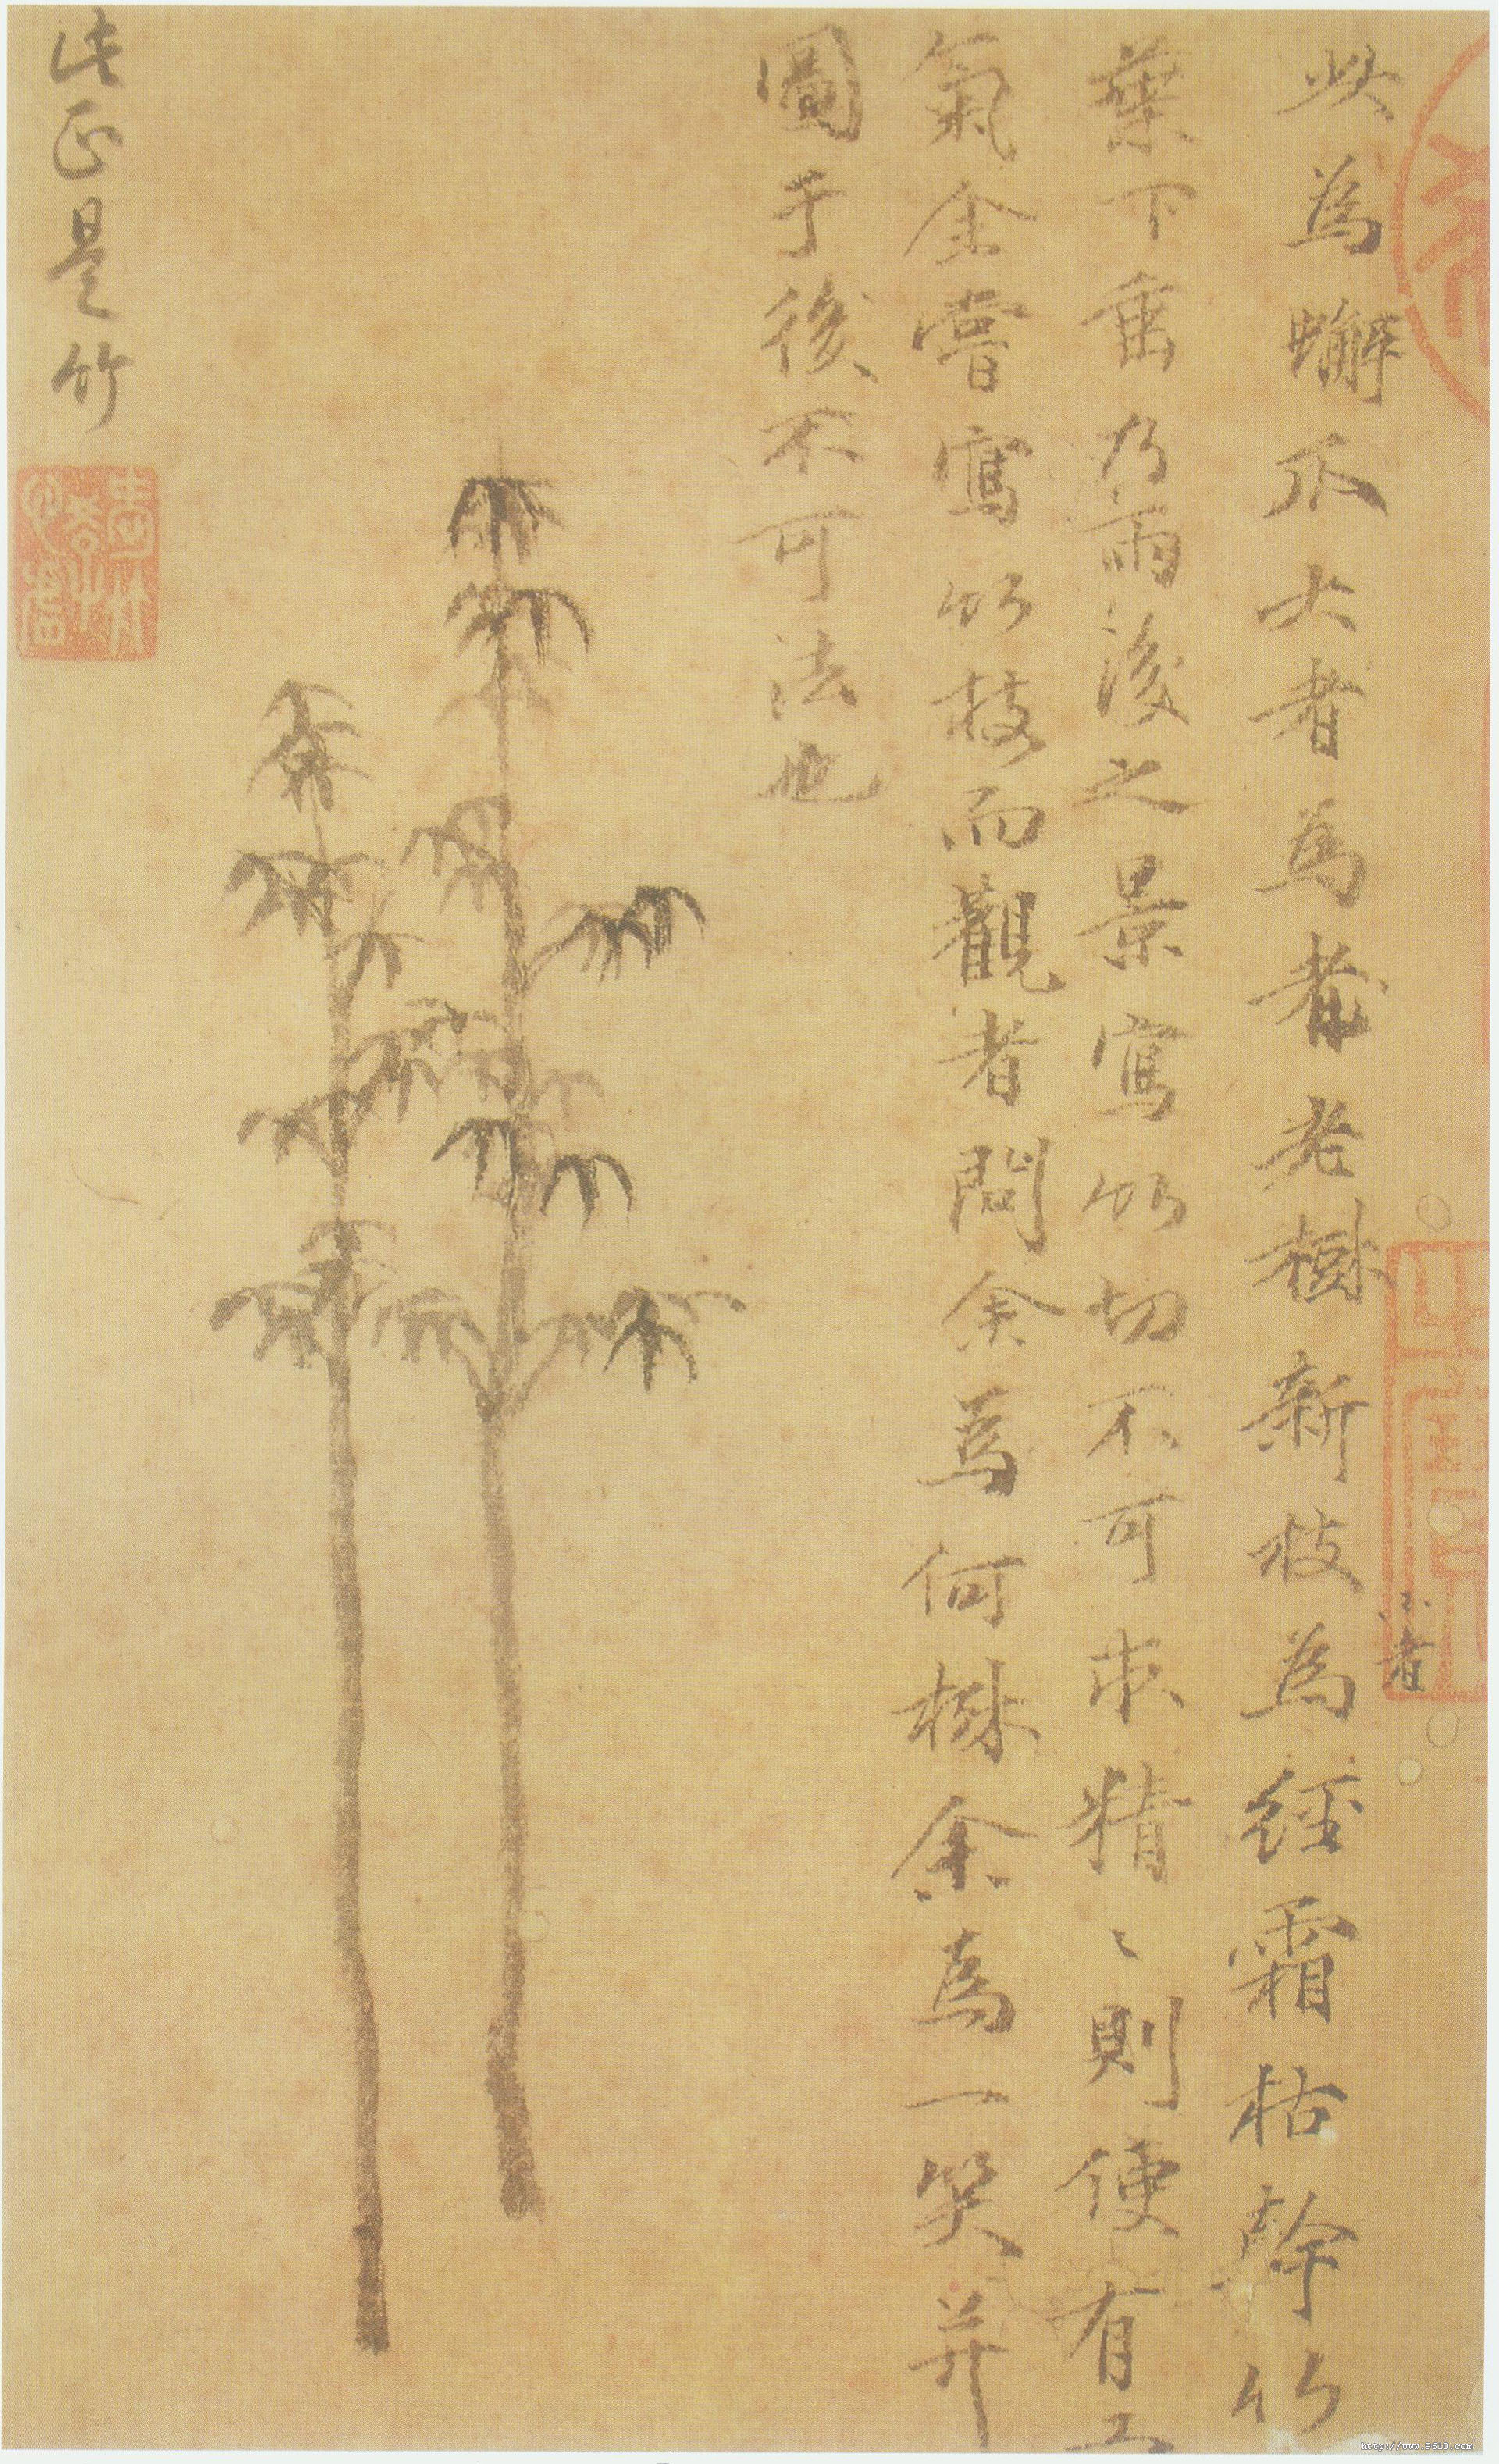 此為蠏爪大者為者老樹新枝為經霜枯幹竹
小者
葉下垂乃雨後之景寫竹切不可求精〻則便有工
氣余嘗寫竹枝而觀者問余為何樹余為一笑并
圖于後不可法也
此正是竹
http://www.9610.com